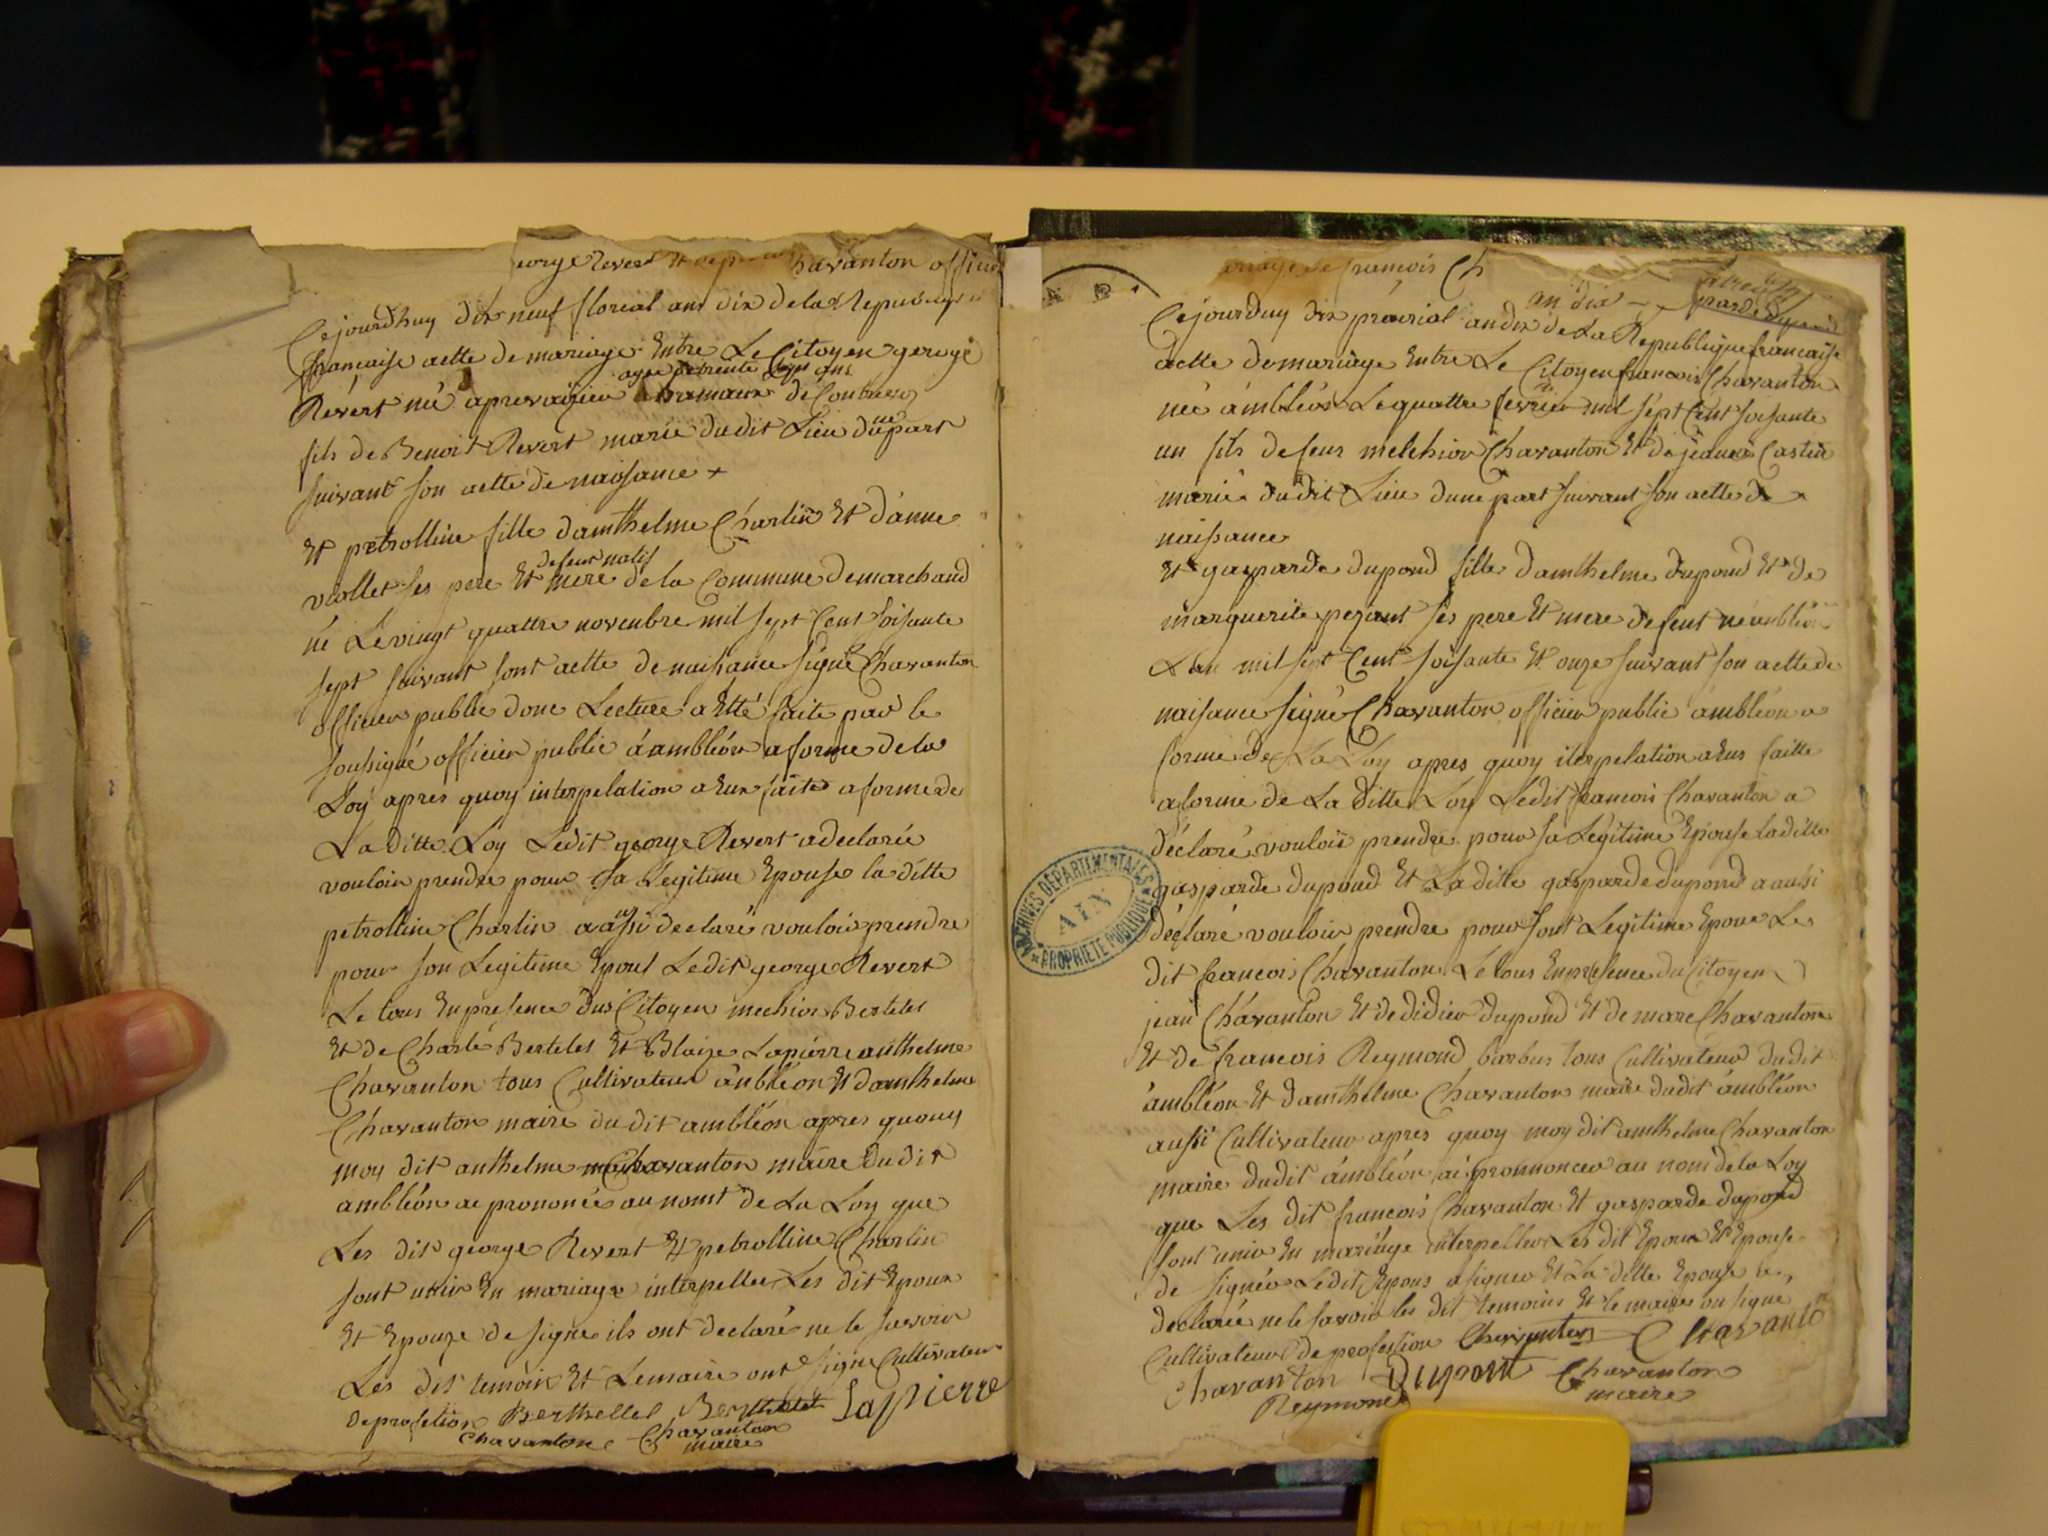 george Revert Et havanton officier
Cejourdhuy dix neuf floreal ans dix de la Republique
francaise actte de mariage Entre Le Citoyen george
agee de trente Cyn ans
Revert né hamaux de Contrevoz
fils de Benoit Revert marie dudit Lieu dune part
suivant son actte de naisance +
Et petrolline fille damthelme Charlin Et d'anne
de feut natif
viollet ses pere Et mere de la Commune demarchand
né Le vingt quattre novenbre mil sept Cent soisante
sept suivant sont actte de naisance signé Chavanton
officier public donc Lecture a Etté faite par le
sousigné officier public á ambléon a forme de la
Loy apres quoy interpelation a Eux faite a forme de
La ditte Loy Ledit george Revert a declarée
vouloir prendre pour sa Legitime Epouse la ditte
petrolline Charlin a aussi declaré vouloir prendre
pour son Legitime Epout Ledit george Revert
Le tous En presence dus Citoyen mechior Bertelet
Et de Charle Bertelet Et Blaize Lapierre anthelme
Chavanton tous Cultivateur ánbléon Et damthelme
Chavanton maire du dit ambléon apres quouy
moy dit anthelme Chavanton maire du dit
ambléon ae prononcée au nomt de La Loy que
Les dit george Revert Et petrolline Charlin
sont unir En mariage interpelleé Les dit Epoux
Et Epouze de signe ils ont declaré ne le savoir
Les dit temoin Et Lemaire ont signe Cultivateur
de profetion Berthellet Berthelet Lapierre
Chavanton Chavanton
maire
mariage de francois Ch
an dix
Cejourduy dix prairial an dix de La Republique francaise
actte de mariage Entre Le Citoyen francois Chavanton
née ámbléon Le quattre fevrier mil sept Cent soisante
un fils de feus melchior Chavanton Et de jeanne Castin
marié du dit Lieu dune part suivant son actte de
naisance
Et gasparde dupond fille d'amthelme dupond Et de
marguerite pezant ses pere Et mere de feut né ambléon
Lan mil sept Cent soisante Et onze suivant son actte de
naisance signé Chavanton officier public ámbléon a
forme de La Loy apres quoy iterpelation a Eus faitte
a forme de La ditte Loy Ledit francois Chavanton a
déclaré vouloir prendre pour sa Légitime Epouse la ditte
gasparde dupond Et La ditte gasparde dupond a aussi
déclaré vouloir prendre pour sont Legitime Epoux Le
dit francois Chavanton Le tous En presence du Citoyen
jean Chávanton Et de didier dupond Et de marc Chavanton
Et de francois Reymond barbus tous Cultivateur dudit
ámbléon Et damthelme Chavanton maire dudit ámbléon
aussi Cultivateur apres quoy moy dit amthelme Chavanton
maire dudit ámbléon ai pronnoncer au nom de la Loy
que Les dit francois Chavanton Et gasparde dupond
sont unir En mariage interpeller Les dit Epoux Et Epouse
de signér Ledit Epous a signer Et La ditte Epouse a
declarée ne le savoir les dit temoins Et le maire on signe
Cultivateur de profession Chavanton
Chavanton Dupont Chavanton
Reymond maire
ARCHIVES DÉPARTEMENTALES
AIN
PROPRIÉTÉ PUBLIQUE